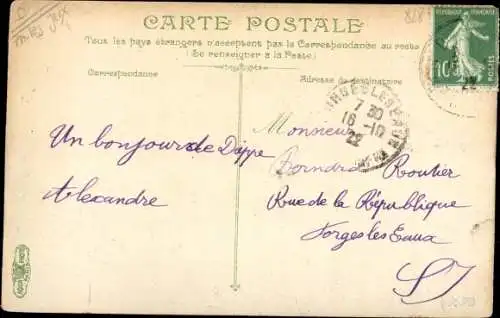 CARTE POSTALE
Tous les pays étrangers n'acceptent pas la Correspondance au recto
(Se renseigner à la Poste)
Correspondance
Adresse du destinataire
7 30
16 - 10
22
10
Un bonjour de Dieppe
Alexandre
Monsieur
Routier
Rue de la République
Forges les Eaux
S I